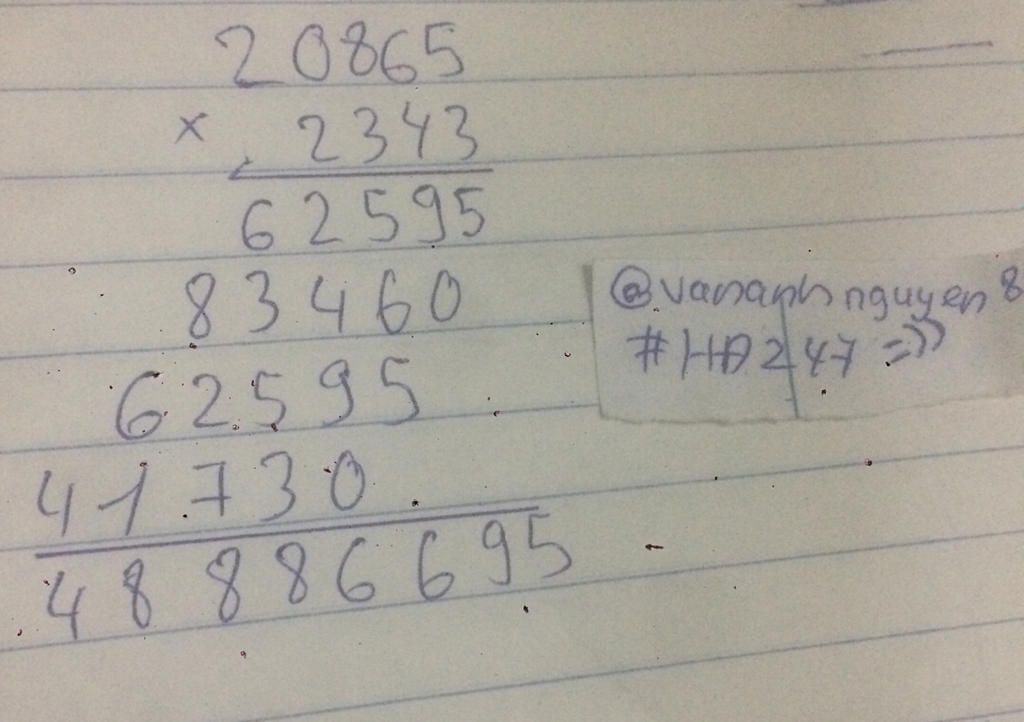 20865
× 2343
62595
83460
62595
41730
48886695
@vananhnguyen8
#HD247 =))